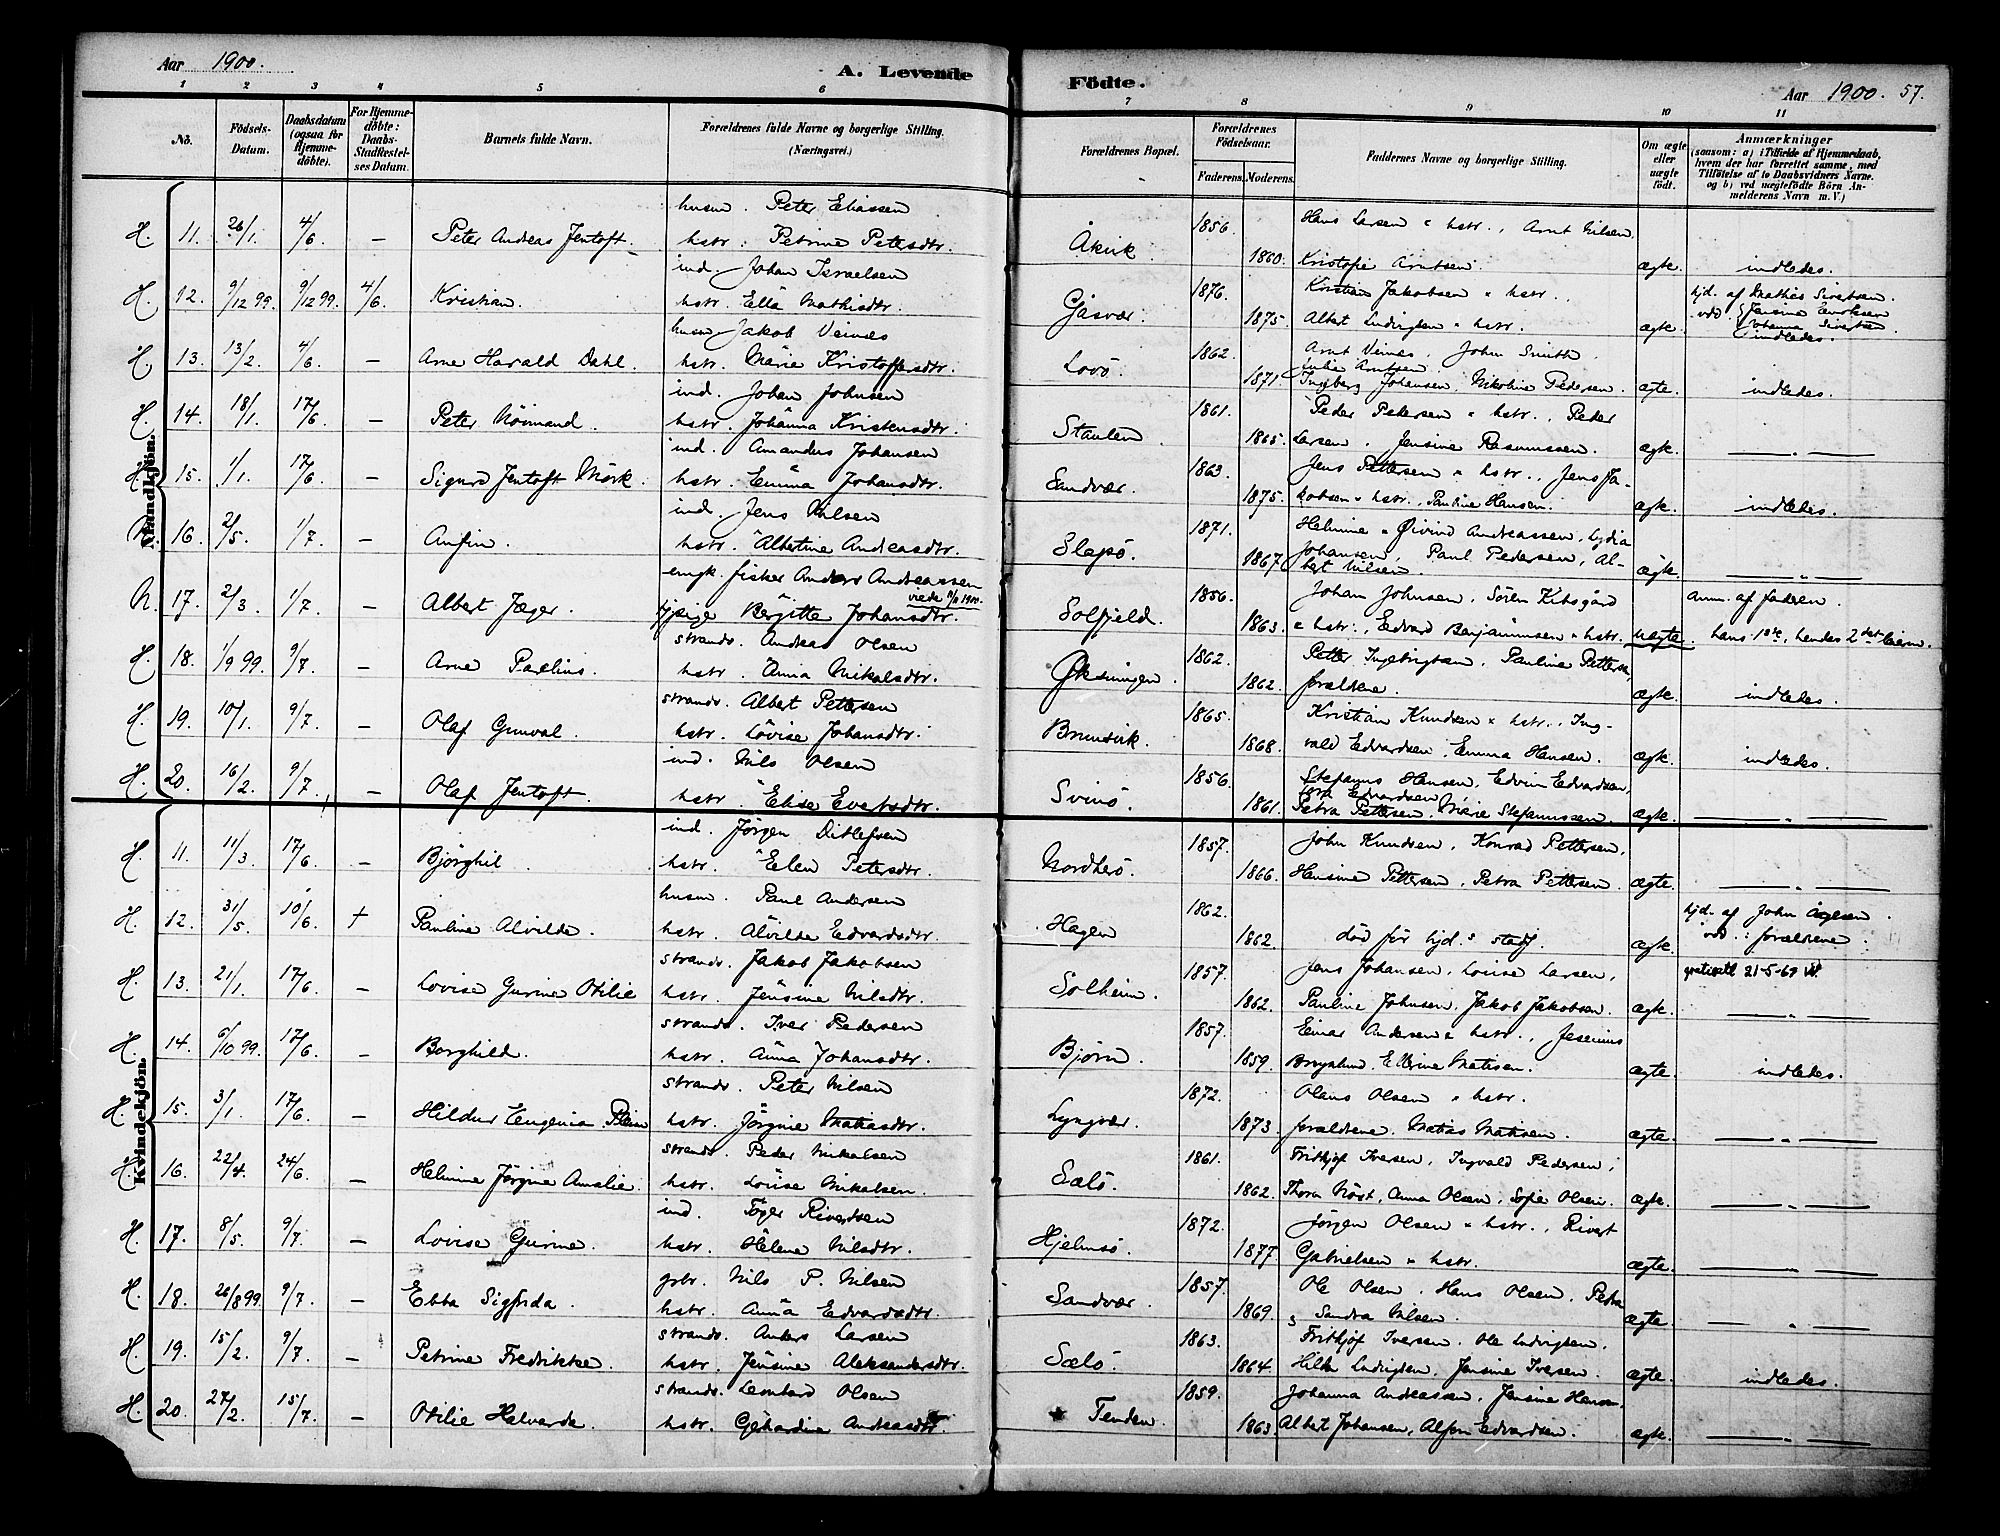 Aar 1900.
A. Levende Födte.
Aar 1900. 57.
1 2 3 4 5 6 7 8 9 10 11
No.
Födsels-Datum.
Daabsdatum (ogsaa for Hjemme-döbte).
For Hjemme-döbte: Daabs-Stadfæstel-ses Datum.
Barnets fulde Navn.
Forældrenes fulde Navne og borgerlige Stilling. (Næringsvei.)
Forældrenes Bopæl.
Forældrenes Födselsaar.
Faderens. Moderens.
Faddernes Navne og borgerlige Stilling.
Om ægte eller uægte født.
Anmærkninger
(saasom: a) i Tilfælde af Hjemmedaab, hvem der har forrettet samme, med Tilföielse af to Daabsvidners Navne. og b) ved uægtefödte Börn An-melderens Navn m. V.)
Mandkjön.
husm. Peter Eliassen 1856. Hans Larsen " hstr., Arnt Nilsen.
H. 11. 26/1. 4/6 — Peter Andreas Jentoft. hstr. Petrine Petersdtr. Åkvik 1860. Kristofie Arntsen. ægte. indledes.
ind. Johan Israelsen 1876. Kristian Jakobsen " hstr. hjd. af Mathis Sivertsen.
H. 12. 9/12 99. 9/12 99. 4/6 Kristian. hstr. Ella Mathisdtr. Gåsvær 1875. Albert Ludvigsen " hstr. ægte. Johanna Sivertsen indledes.
husm Jakob Veines 1862. Arnt Veines, John Smith.
H. 13. 13/2. 4/6. — Arne Harald Dahl. hstr. Marie Kristoffersdtr. Lovö 1871 Julie Arntsen. Ingeborg Johansen, Nikoline Pedersen. ægte. indledes.
ind. Johan Johnsen 1861. Peder Petersen " hstr., Peder
H. 14. 18/1. 17/6. — Peter Nörmand. hstr. Johanna Kristensdtr. Staulen 1865. Larsen. Jensine Rasmussen. ægte. — " —
ind. Amandus Johansen 1863. Jens Pettersen " hstr., Jens Ja-
H. 15. 1/1. 17/6. — Sigurd Jentoft Mörk. hstr. Emma Johansdtr. Sandvær. 1875. kobsen " hstr., Pauline Hansen. ægte. indledes.
ind. Jens Nilsen 1871. Helmine " Øivind Andreassen, Lydia
N. 16. 2/5. 1/7. — Anfin. hstr. Albertine Andreasdtr. Slapö. 1867. Johansen, Paul Pedersen, Al-bert Nilsen. ægte. — " —
ungk. fisker Anders Andreassen viede 11/11 1900. 1856. Johan Johnsen, Sören Kibsgård Anm. af faderen.
N. 17. 2/3. 1/7. — Albert Jæger. pige Bergitte Johansdtr. Solfjeld. 1863. " hstr., Edvard Benjaminsen " hstr. uægte. hans 1ste, hendes 2det leierm.
strands. Andreas Olsen 1862. Petter Ingebrigtsen, Pauline Petters,
H. 18. 1/9 99. 9/7 — Arne Paulius. hstr. Anna Nikolsdtr. Øksningen. 1862. forældrene. ægte. indledes.
strands. Albert Pettersen 1865. Kristian Knudsen " hstr., Ing-
H. 19. 10/1. 9/7. — Olaf Gunval. hstr. Lovise Johansdtr. Brunsvik. 1868. vald Edvardsen, Emma Hansen. ægte. indledes.
ind. Nils Olsen 1856. Stefanus Hansen, Edvin Edvardsen,
H. 20. 16/2. 9/7. — Olaf Jentoft. hstr. Elise Evertsdtr. Svinö. 1861. Tora Edvardsen, Petra Pettersen, Marie Stefanussen. ægte. — " —
Kvindekjön.
ind. Jörgen Ditlefsen 1857. John Knudsen, Konrad Pettersen,
H. 11. 11/3. 17/6. — Bjørghil. hstr. Elen Petersdtr. Nordherö. 1866. Hansine Pettersen, Petra Pettersen. ægte. — " —
husm. Paul Andersen 1862. hjd. af John Ågesen.
H. 12. 31/5. 10/6. + Pauline Alvilde. hstr. Alvilde Edvardsdtr. Hagen 1862. död för hjd.s stadf. ægte. vdd.: forældrene.
strands. Jakob Jakobsen 1857. Jens Johansen, Louise Larsen, 21-5-69
H. 13. 21/1. 17/6. — Lovise Gurine Otilie hstr. Jensine Nilsdtr. Solheim. 1862. Pauline Johnsen, Jakob Jakobsen. ægte. — " —
strands. Iver Pedersen 1857. Einar Andersen " hstr., Jesenius
H. 14. 9/10 99. 17/6. — Borghild. hstr. Anna Johansdtr. Bjørn. 1859. Brynlund, Ellerine Matisen. ægte. indledes.
strands. Peter Nilsen 1872. Olaus Olsen " hstr.
H. 15. 3/1. 17/6. — Hildur Eugenia hstr. Jörgine Matiasdtr. Lyngvær. 1873. forældrene. Matias Matisen. ægte. — " —
strands. Peder Mikalsen 1861. Fridthjof Iversen, Ingvald Pedersen,
H. 16. 22/4. 24/6. — Helmine Jörgine Amalie. hstr. Louise Mikalsen. Sælö. 1862. Thora Möst, Anna Olsen, Sofie Olsen. ægte. — " —
ind. Toger Rivertsen 1872. Jörgen Olsen " hstr., Rivert
H. 17. 8/5. 9/7. — Lovise Gurine. hstr. Helene Nilsdtr. Hjelmsö. 1877. Gabrielsen " hstr. ægte. — " —
gbr. Nils P. Nilsen 1857. Ole Olsen, Hans Olsen, Petra
H. 18. 26/8 99. 9/7. — Ebba Sigfrida. hstr. Anna Edvardsdtr. Sandvær. 1869. Sandra Nilsen. ægte. — " —
strands. Anders Larsen 1863. Fridthjof Iversen, Ole Ludvigsen,
H. 19. 15/2. 9/7. — Petrine Fredrikke. hstr. Jensine Aleksandersdtr. Sælö. 1864. Hilda Ludvigsen, Jensine Iversen. ægte. indledes.
strands. Leonhard Olsen 1859. Johanna Andreassen, Jensine Hansen.
H. 20. 27/2. 15/7. — Otilie Halverda. hstr. Gjerhardine Andreasdtr. Tenden. 1863. Albert Johansen, Alfon Edvardsen. ægte. — " —